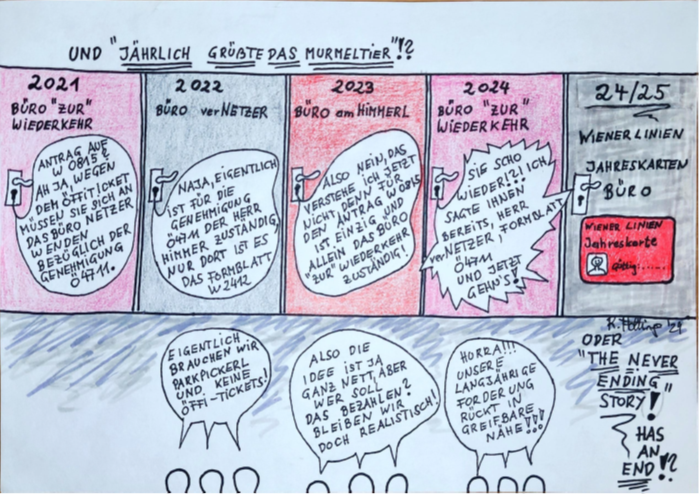 UND "JÄHRLICH GRÜßTE DAS MURMELTIER"!?
2021
BÜRO "ZUR"
WIEDERKEHR
ANTRAG AUF
W 0815?
AH JA, WEGEN
DEM ÖFFITICKET
MÜSSEN SIE SICH AN
DAS BÜRO NETZER
WENDEN
BEZÜGLICH DER
GENEHMIGUNG
Ö 4711.
2022
BÜRO verNETZER
NAJA, EIGENTLICH
IST FÜR DIE
GENEHMIGUNG
Ö4711 DER HERR
HIMMER ZUSTÄNDIG,
NUR DORT IST ES
DAS FORMBLATT
W 2412
2023
BÜRO am HiMMERL
ALSO NEIN, DAS
VERSTEHE ICH JETZT
NICHT DENN FÜR
DEN ANTRAG W 0815
IST EINZIG UND
ALLEIN DAS BÜRO
"ZUR" WIEDERKEHR
ZUSTÄNDIG!
2024
BÜRO "ZUR"
WIEDERKEHR
SIE SCHO
WIEDER!?! ICH
SAGTE IHNEN
BEREITS, HERR
verNETZER, FORMBLATT
Ö 4711
UND JETZT
GEHN'S!
24/25
WIENER LINIEN
JAHRESKARTEN
BÜRO
WIENER LINIEN
Jahreskarte
Gültig:......
EIGENTLICH
BRAUCHEN WIR
PARKPICKERL
UND KEINE
ÖFFI-TICKETS!
ALSO DIE
IDEE IST JA
GANZ NETT, ABER
WER SOLL
DAS BEZAHLEN?
BLEIBEN WIR
DOCH REALISTISCH!
HURRA!!!
UNSERE
LANGJÄHRIGE
FORDERUNG
RÜCKT IN
GREIFBARE
NÄHE!!!
ODER
"THE NEVER
ENDING"
STORY!
HAS
AN
END!?